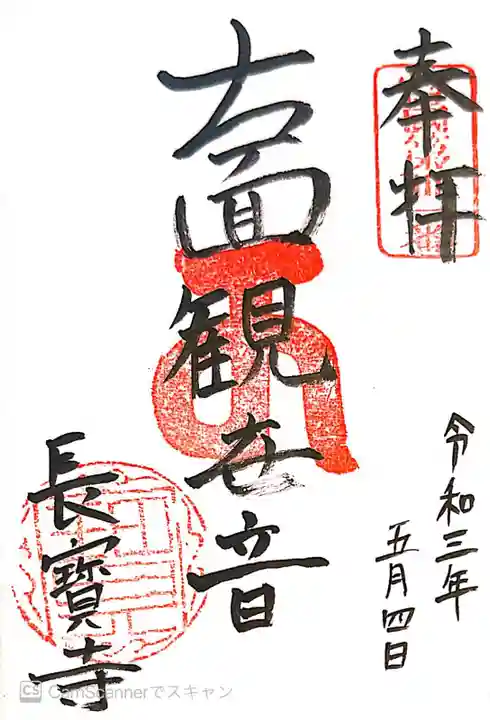 奉拝
十一面観世音
長寳寺
令和三年
五月四日
CS CamScannerでスキャン